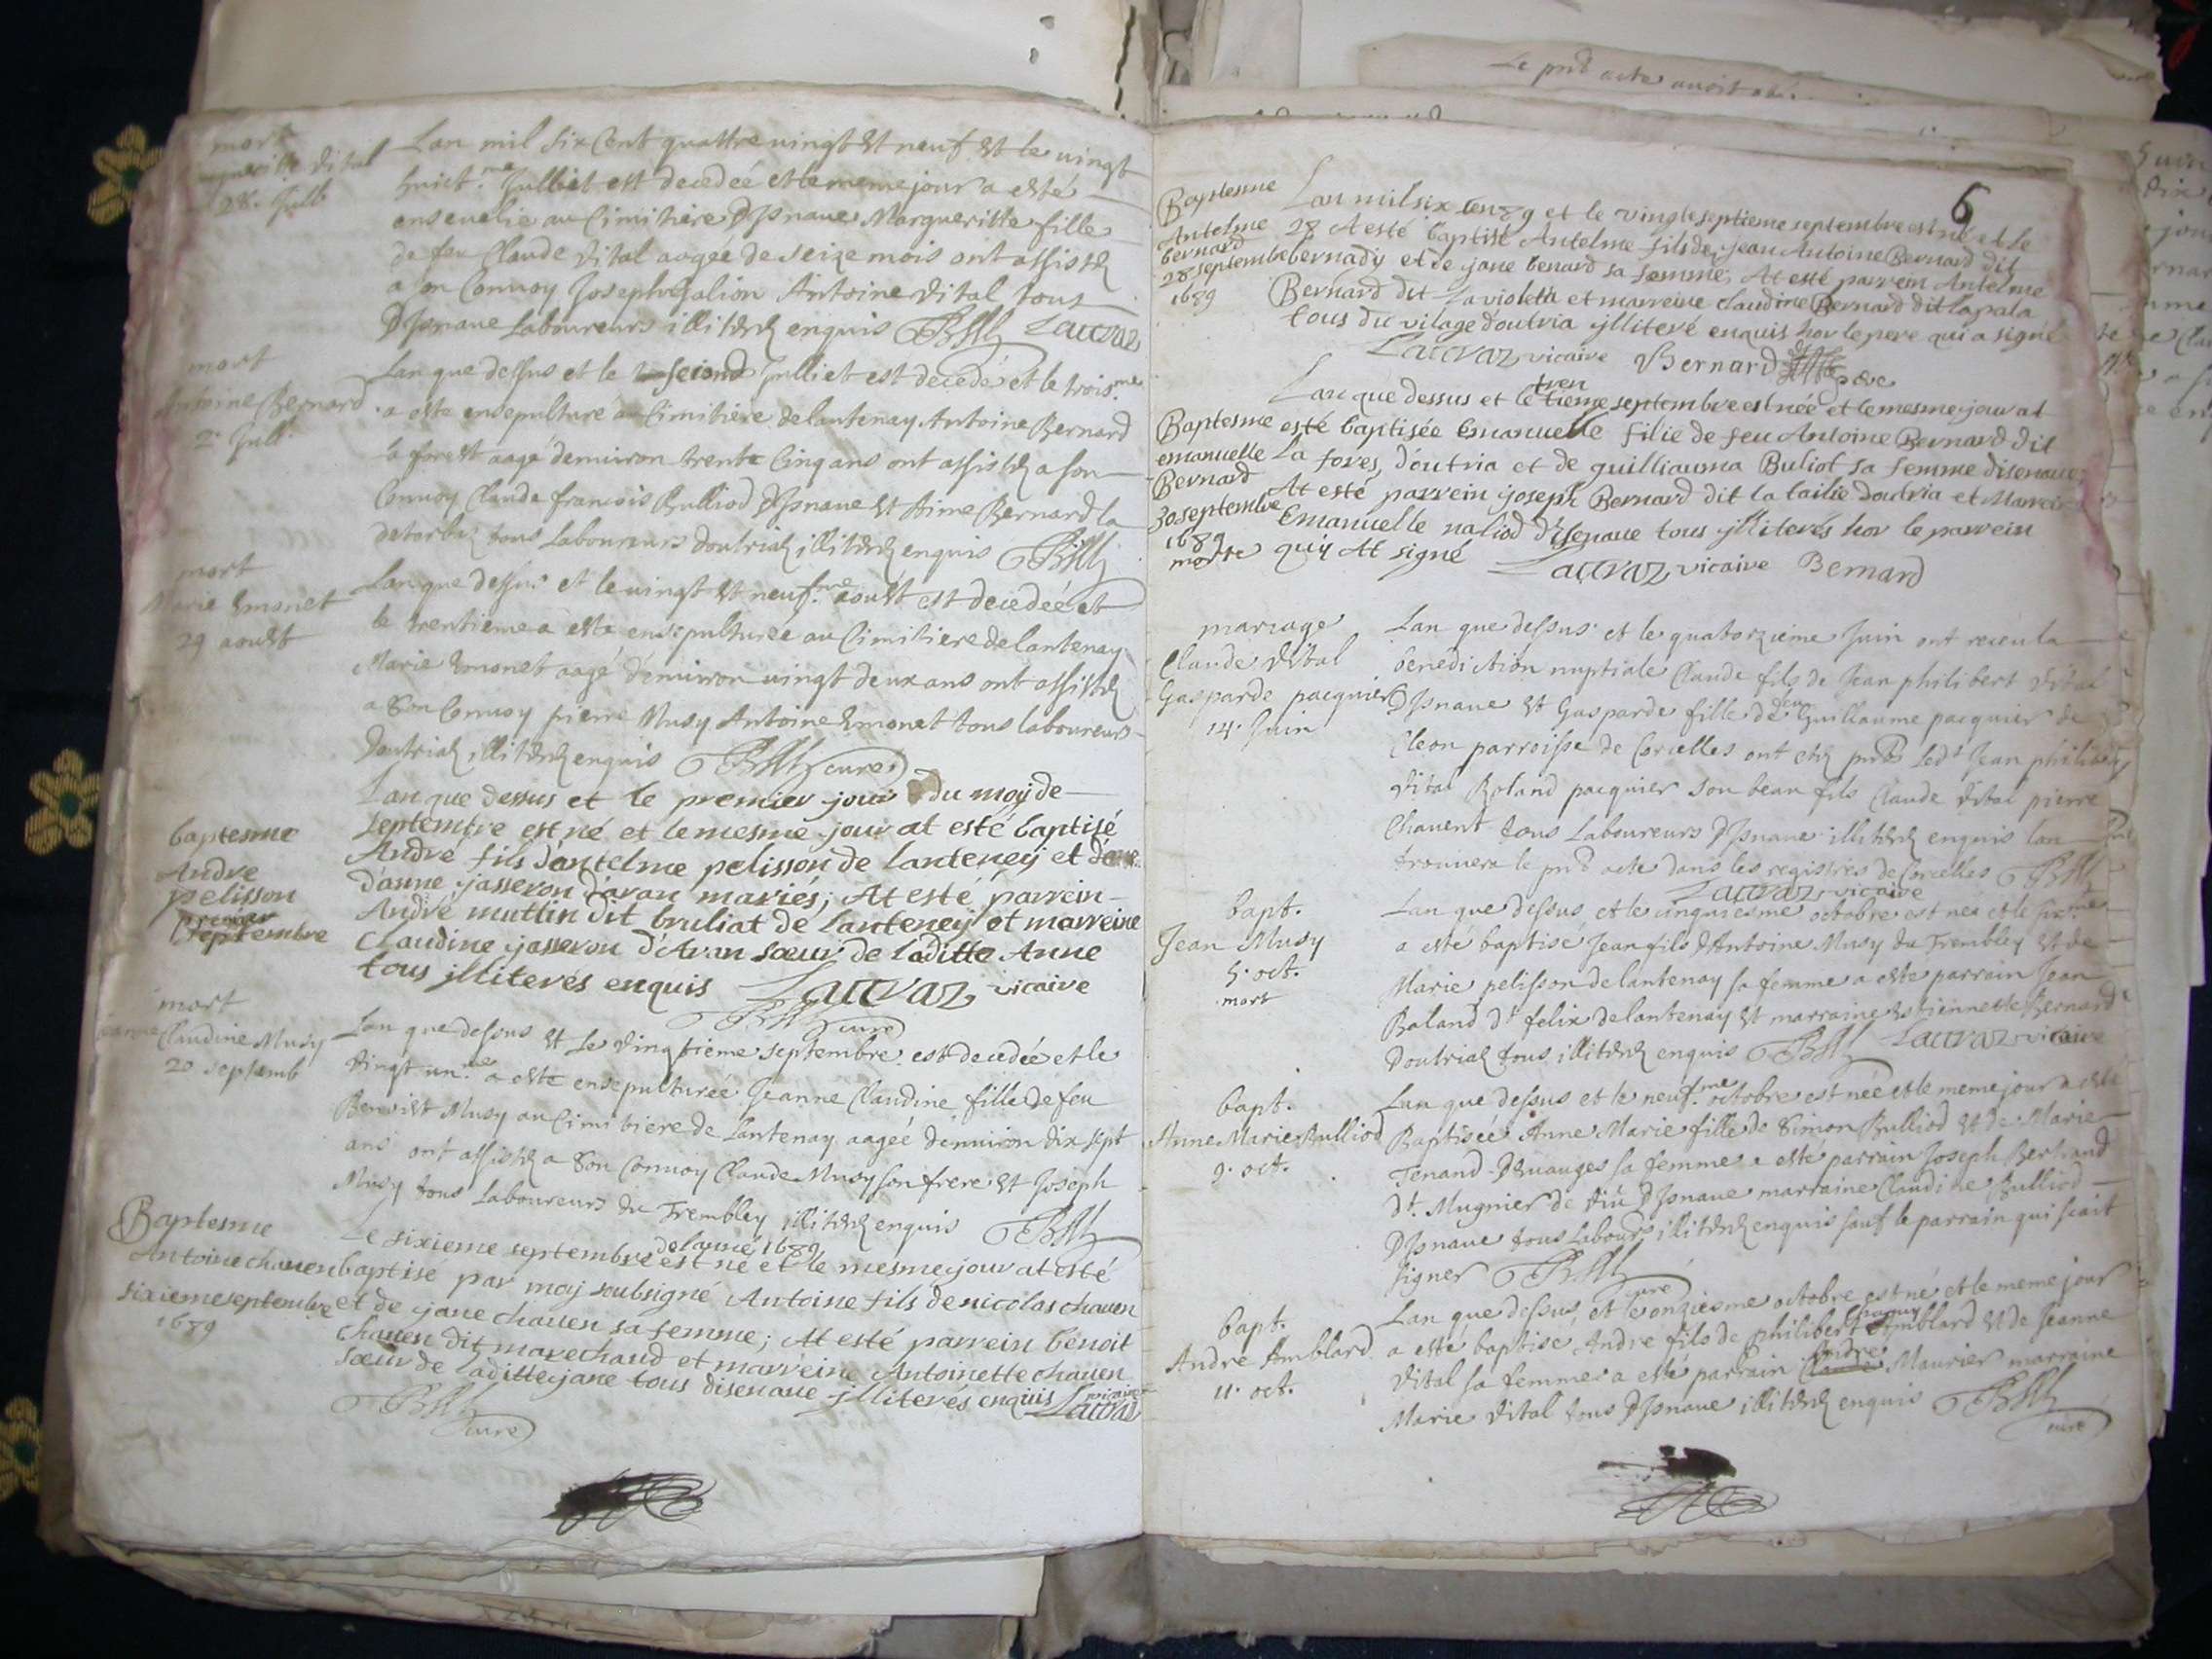 Le pnt acte auoit
mort
Marguerite Vital
28. Jull
Lan mil six Cent quattre uingt et neuf et le uingt
huict.me Julliet est decedeé et le meme jour a esté
enseuelie au Cimitiere D'Isnaue Margueritte fille
de feu Claude Vital aageé de seize mois ont assistez
a son Conuoy Joseph Jalion Antoine Vital tous
D'Isnaue Laboureurs illiterez enquis Lauraz
mort
Antoine Bernard
2. Jull.
Lan que dessus et le second Julliet est decedé et le trois.me
a este ensepulturé au Cimitiere de lantenay Antoine Bernard
la forest aagé denuiron trente Cinq ans ont assistez a son
Conuoy Claude francois Bulliod D'Isnaue et Aime Bernard la
tous Laboureurs doutriaz illiterez enquis
mort
Marie Emonet
29 aoust
Lan que dessus et le uingt et neuf.me aoust est decedeé et
le trentieme a este ensepultureé au Cimitiere de lantenay
Marie Emonet aagé denuiron uingt deux ans ont assistez
a Son Conuoy pierre Musy Antoine Emonet tous laboureurs
doutriaz illiterez enquis curé
baptesme
Andre
pelisson
premier
septembre
Lan que dessus et le premier jour du moy de
septembre est né et le mesme jour at esté baptisé
André fils d'antelme pelisson de lanteney et
d'anne jasseron d'avan mariés; At esté parrein
André muttin dit bruliat de Lanteney et marreine
Claudine jasseron d'Avan sœur de laditte Anne
tous jlliterés enquis Lauraz vicaire
curé
mort
Jeanne Claudine Musy
20 septemb
Lan que dessus et Le Vingtieme septembre est decedeé et le
Vingt un.me a este ensepultureé Jeanne Claudine fille de feu
Benoist Musy au Cimitiere de Lantenay aageé denuiron dix sept
ans ont assistez a Son Conuoy Claude Musy son frere et Joseph
Musy tous Laboureurs du Trembley illiterez enquis
Baptesme
Antoine chauen
sixieme septembre
1689
Le sixieme septembre de lanné 1689 est né et le mesme jour at esté
baptisé par moy soubsigné Antoine fils de nicolas chauen
et de jane chauen sa femme; At esté parrein benoit
chauen dit marechaud et marreine Antoinette chauen
sœur de laditte jane tous disenaue jlliterés enquis Lauraz vicaire
curé
6
Baptesme
Antelme
bernard
28 septembre
1689
Lan mil six cen 89 et le vingt septieme septembre est né et le
28 At esté baptisé Antelme fils de jean Antoine Bernard dit
bernady et de jane benard sa femme; At esté parrein Antelme
Bernard dit La violetta et marreine claudine Bernard dit lapala
tous du vilage doutria jlliteré enquis hor le pere qui a signé
Lauraz vicaire Bernard pere
Baptesme
emanuelle
Bernard
30 septembre
1689
morte
Lan que dessus et le trentieme septembre est née et le mesme jour at
esté baptisée Emanuelle filie de feu Antoine Bernard dit
La fores, d'outria et de guilliauma Buliot sa femme disenaue;
At esté parrein joseph Bernard dit la tailie doutria et Marreine
Emanuelle naliod D'Isenaue tous jlliterés hor le parrein
quy At signé Lauraz vicaire Bernard
mariage
Claude Vital
Gasparde pacquier
14. Juin
Lan que dessus et le quatorzieme Juin ont receu la
benediction nuptiale Claude fils de Jean philibert Vital
D'Isnaue et Gasparde fille de feu Guillaume pacquier de
Cleon parroisse de Corcelles ont etez pnts Ledt Jean philibert
Vital Roland pacquier son beau fils Claude Vital pierre
Chauent tous Laboureurs D'Isnaue illiterez enquis lon
trouuera le pnt acte dans les registres de Corcelles
Lauraz vicaire
bapt.
Jean Musy
5. oct.
mort
Lan que dessus et le cinquiesme octobre est né et le six.me
a esté baptisé Jean fils d'Antoine Musy du Trembley et de
Marie pelisson de lantenay sa femme a este parrain Jean
Baland dt felix de lantenay et marraine Estiennette Bernard
Doutriaz tous illiterez enquis Lauraz vicaire
bapt.
Anne Marie Bulliod
9. oct.
Lan que dessus et le neuf.me octobre est neé et le meme jour a esté
Baptiseé Anne Marie fille de Simon Bulliod et de Marie
Tenand Deuauges sa femme a esté parrain Joseph Bertrand
dt. Mugnier de D'Isnaue marraine Claudine Bulliod
D'Isnaue tous Labours illiterez enquis sauf le parrain qui scait
signer curé
bapt.
Andre Amblard
11. oct.
Lan que dessus et le onziesme octobre est né et le meme jour
a esté baptisé Andre fils de philibert Amblard et de Jeanne
Vital sa femme a esté parrain Andre Maurier marraine
Marie Vital tous D'Isnaue illiterez enquis
curé